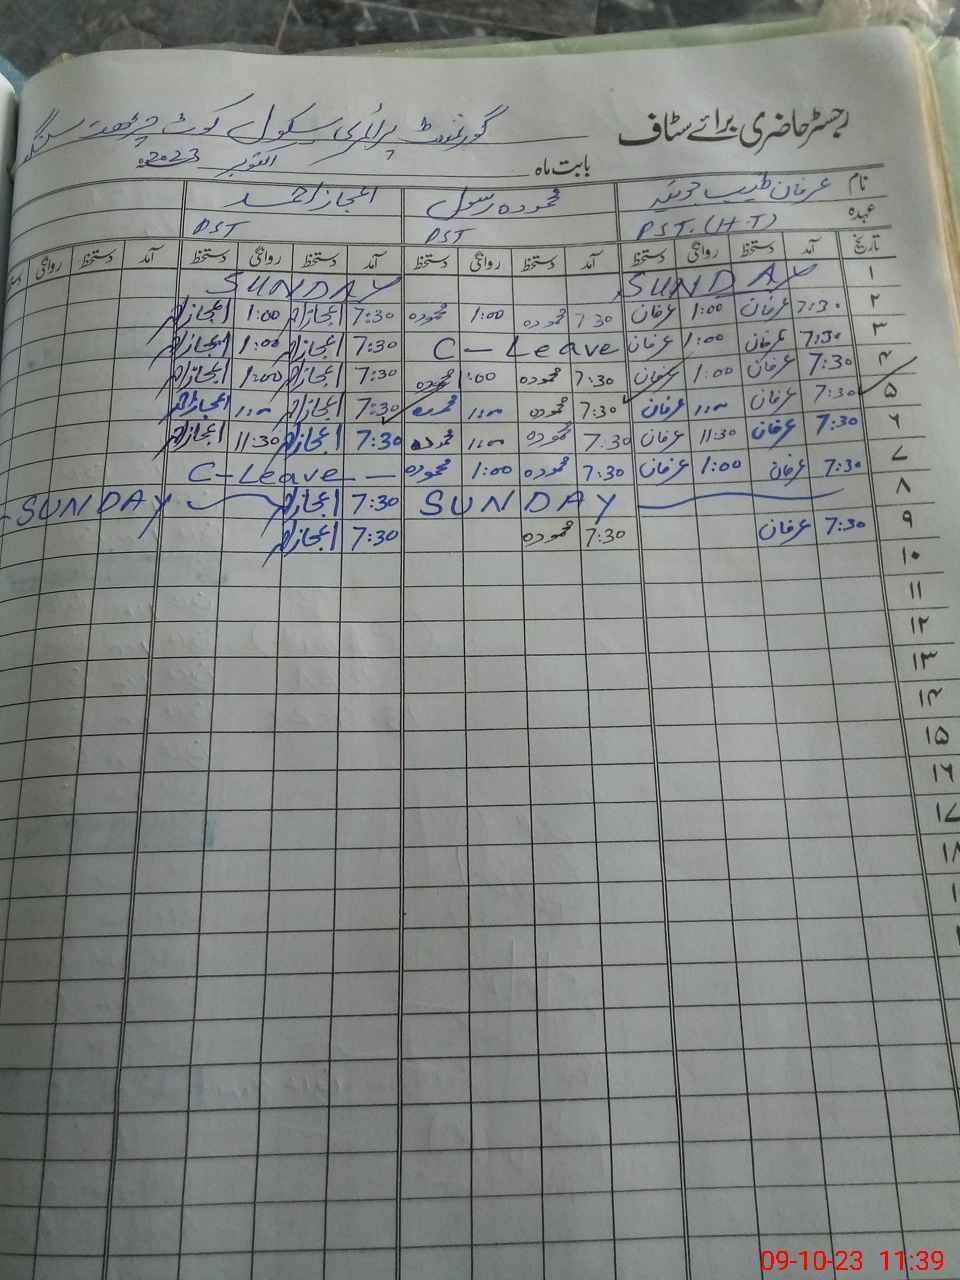 رجسٹر حاضری برائے سٹاف گورنمنٹ پرائمری سکول کوٹ چڑھت سنگھ
بابت ماہ اکتوبر 2023ء
نام عرفان طیب محمودہ رسول اعجاز احمد
عہدہ PST.(H.T) PST PST
تاریخ آمد دستخط روانگی دستخط آمد دستخط روانگی دستخط آمد دستخط روانگی دستخط آمد دستخط روانگی
۱ SUNDAY SUNDAY
۲ 7:30 عرفان 1:00 عرفان 7:30 محمودہ 1:00 محمودہ 7:30 اعجاز احمد 1:00 اعجاز احمد
۳ 7:30 عرفان 1:00 عرفان C-Leave 7:30 اعجاز احمد 1:00 اعجاز احمد
۴ 7:30 عرفان 1:00 عرفان 7:30 محمودہ 1:00 محمودہ 7:30 اعجاز احمد 1:00 اعجاز احمد
۵ 7:30 عرفان 1:00 عرفان 7:30 محمودہ 1:00 محمودہ 7:30 اعجاز احمد 1:00 اعجاز احمد
۶ 7:30 عرفان 11:30 عرفان 7:30 محمودہ 11:00 محمودہ 7:30 اعجاز احمد 11:30 اعجاز احمد
۷ 7:30 عرفان 1:00 عرفان 7:30 محمودہ 1:00 محمودہ C-Leave
۸ SUNDAY 7:30 اعجاز احمد SUNDAY
۹ 7:30 عرفان 7:30 محمودہ 7:30 اعجاز احمد
۱۰
۱۱
۱۲
۱۳
۱۴
۱۵
۱۶
۱۷
۱۸
09-10-23 11:39